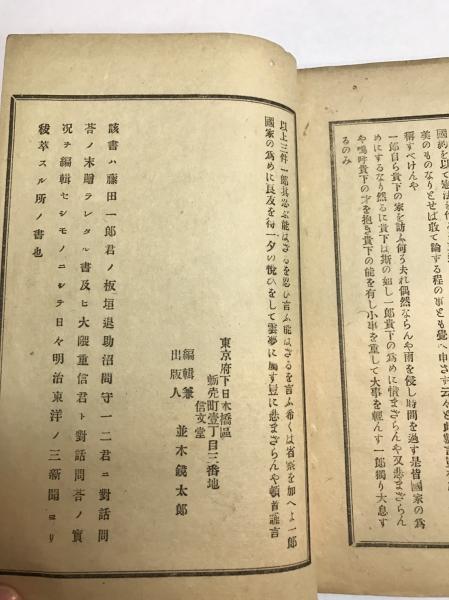 國約を以て憲法
美のものなりとせば敢て論する程の事とも覺へ申さず
稱すべけんや
一郎自ら貴下の家を訪ふ何う夫れ偶然ならんや雨を侵し時間を過す是皆國家の爲
めにするなり然るに貴下は斯の如し一郎貴下の爲めに惜まざらんや又悲まざらん
や嗚呼貴下の才を抱き貴下の能を有し小事を重して大事を輕んす一郎獨り大息す
るのみ
以上三件一郎其忍ぶ能はざるを忍ひ言ふ能はざるを言ふ希くは省察を加へよ一郎
國家の爲めに良友を得一夕の悦ひをして雲夢に屬す豈に悲まざらんや頓首謹言
東京府下日本橋區
蠣売町壹丁目三番地
信文堂
編輯兼
出版人
並木鏡太郎
該書ハ藤田一郎君ノ板垣退助沼間守一二君ニ對話問
荅ノ末贈ラレタル書及ヒ大隈重信君ト對話問荅ノ實
况ヲ編輯セシモノニシテ日々明治東洋ノ三新聞ヨリ
秡萃スル所ノ書也